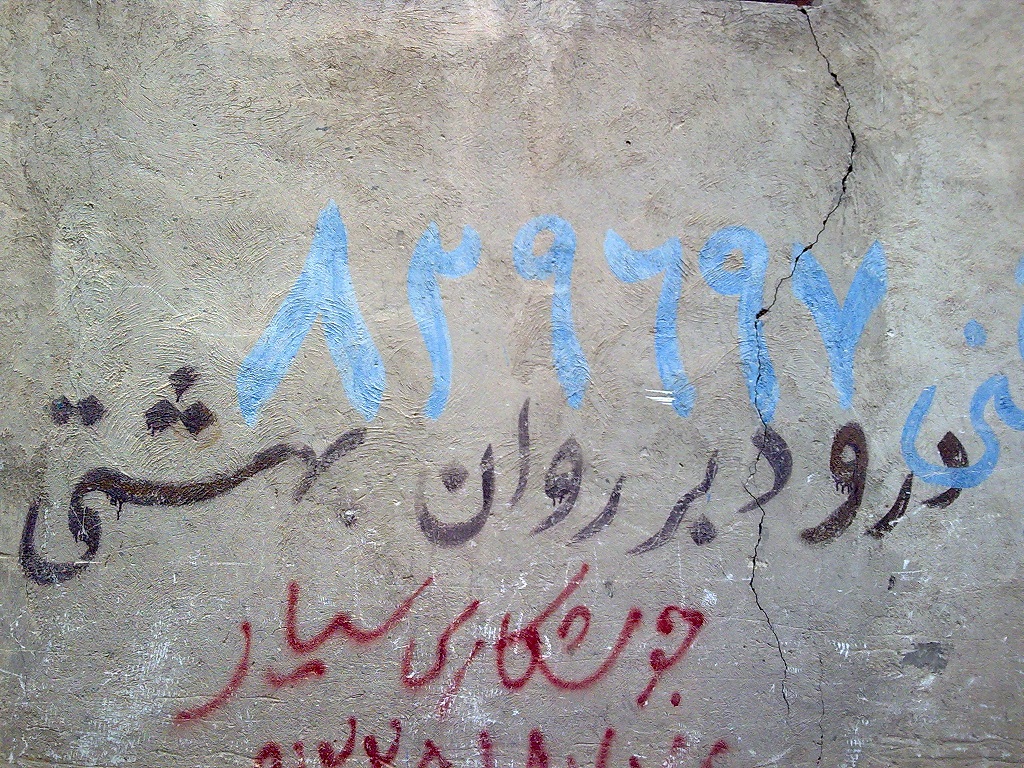 ۸۲۹۶۹۷
درود بر روان بهشتی
جوشکاری سیار